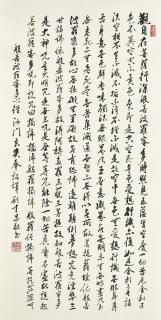 觀自在菩薩行深般若波羅蜜多時照見五蘊皆空度一切苦厄舍利子
色不異空空不異色色即是空空即是色受想行識亦復如是舍利子是諸
法空相不生不滅不垢不淨不增不減是故空中無色無受想行識無眼耳鼻
舌身意無色聲香味觸法無眼界乃至無意識界無無明亦無無明盡乃至無
老死亦無老死盡無苦集滅道無智亦無得以無所得故菩提薩埵依般若
波羅蜜多故心無罣礙無罣礙故無有恐怖遠離顛倒夢想究竟涅槃三
世諸佛依般若波羅蜜多故得阿耨多羅三藐三菩提故知般若波羅蜜多
是大神咒是大明咒是無上咒是無等等咒能除一切苦真實不虛故說般
若波羅蜜多咒即說咒曰揭諦揭諦波羅揭諦波羅僧揭諦菩提薩婆訶
般若波羅蜜多心經 沙門玄奘奉詔譯